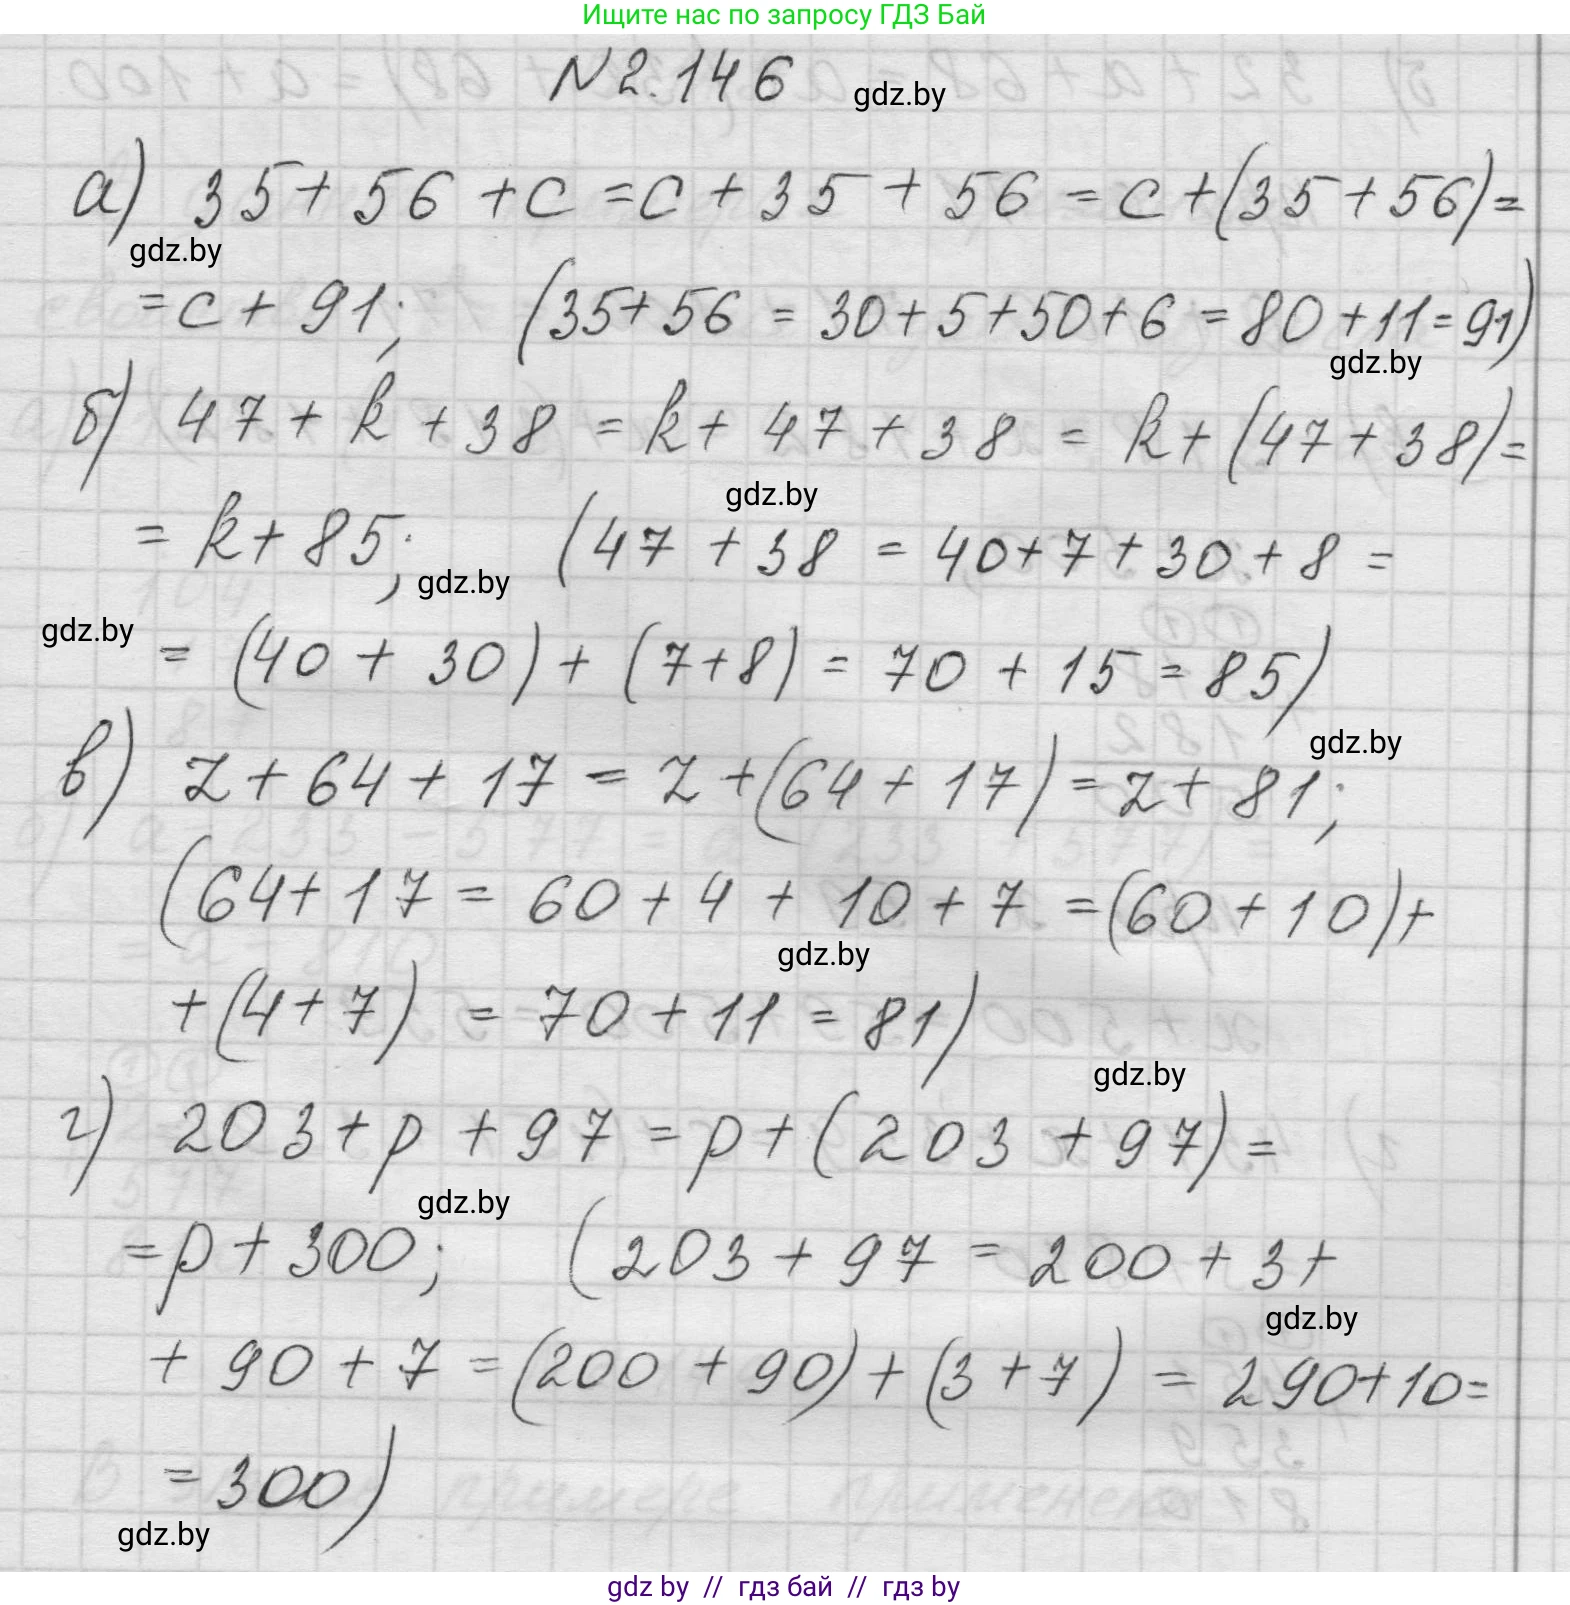 Ищите нас по запросу ГДЗ Бай
N 2.146 gdz.by
а) 35 + 56 + c = c + 35 + 56 = c + (35 + 56) =
gdz.by
= c + 91; (35 + 56 = 30 + 5 + 50 + 6 = 80 + 11 = 91)
gdz.by
б) 47 + k + 38 = k + 47 + 38 = k + (47 + 38) =
gdz.by
= k + 85; (47 + 38 = 40 + 7 + 30 + 8 =
gdz.by
gdz.by
= (40 + 30) + (7 + 8) = 70 + 15 = 85)
gdz.by
в) z + 64 + 17 = z + (64 + 17) = z + 81;
(64 + 17 = 60 + 4 + 10 + 7 = (60 + 10) +
gdz.by
+ (4 + 7) = 70 + 11 = 81)
gdz.by
г) 203 + p + 97 = p + (203 + 97) =
gdz.by
= p + 300; (203 + 97 = 200 + 3 +
gdz.by
+ 90 + 7 = (200 + 90) + (3 + 7) = 290 + 10 =
= 300)
gdz.by
gdz by // гдз бай // гдз by